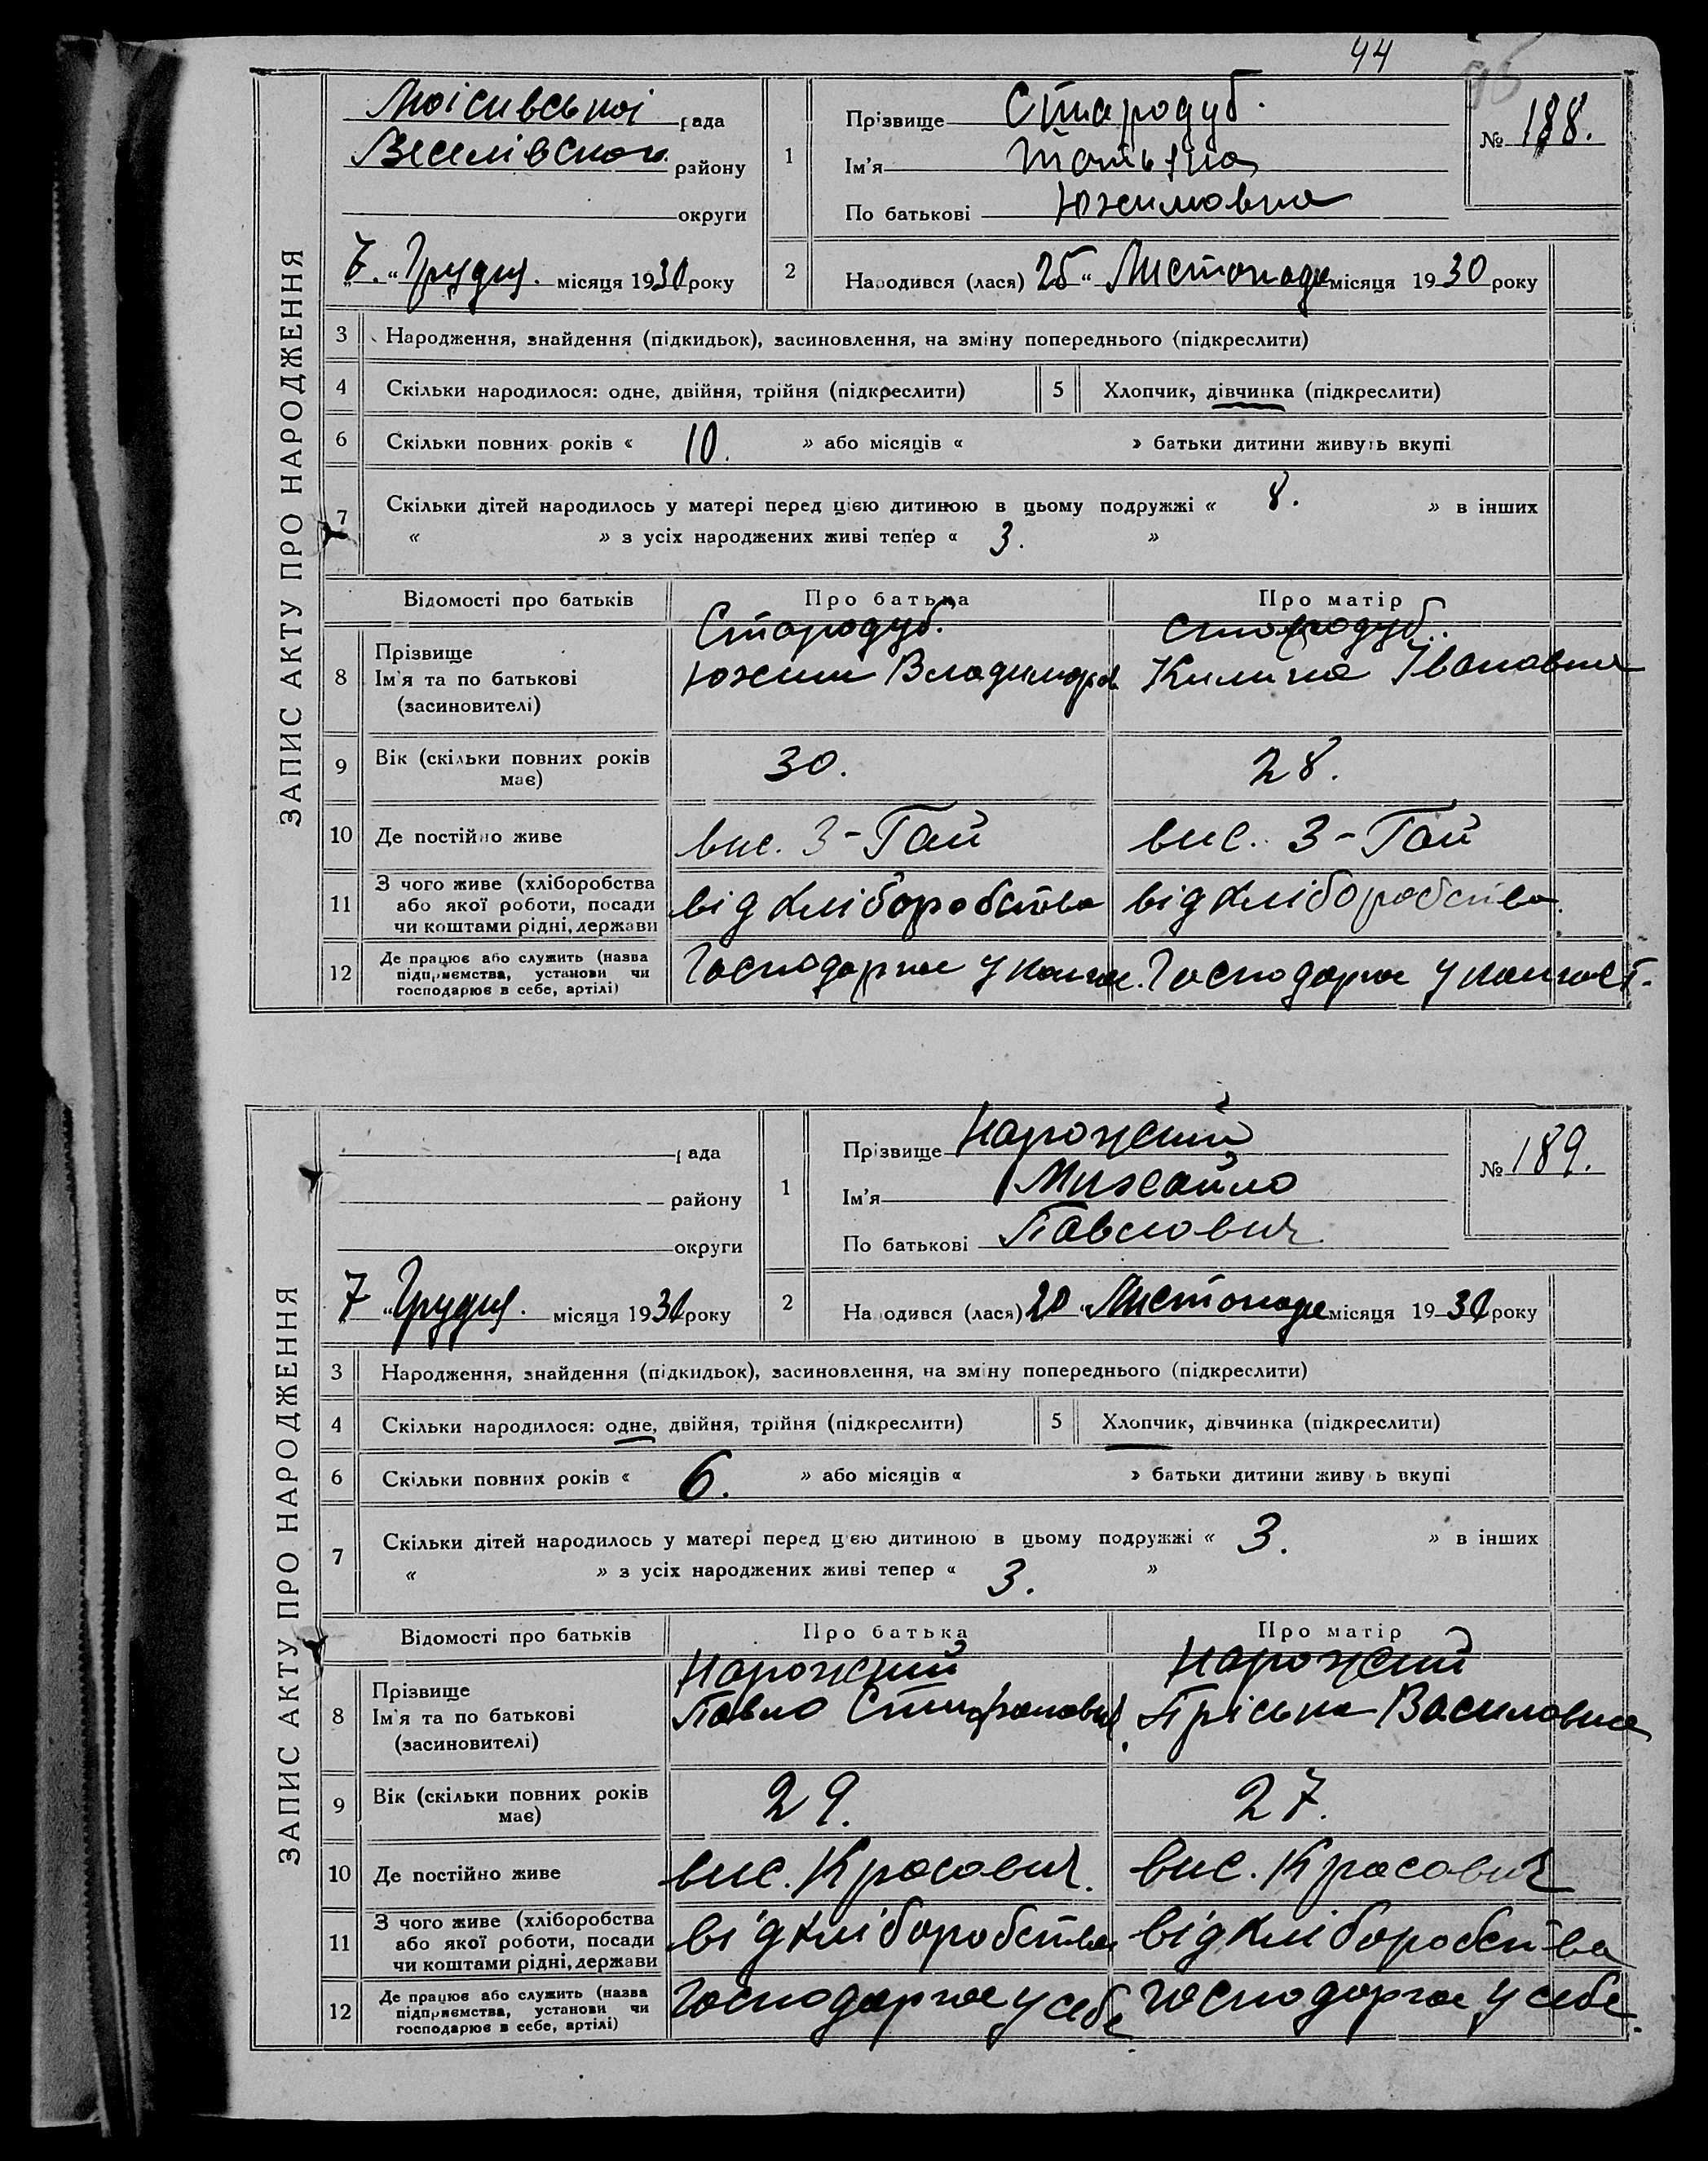 44
ЗАПИС АКТУ ПРО НАРОДЖЕННЯ
Моісивської рада
Веселівського району
округи
7. "Грудня. місяця 1930 року
1
Прізвище Стародуб.
Ім'я Татьяна
По батькові Юхимовна
№ 188.
2
Народився (лася) 25 " Листопада місяця 1930 року
3 Народження, знайдення (підкидьок), засиновлення, на зміну попереднього (підкреслити)
4 Скільки народилося: одне, двійня, трійня (підкреслити) 5 Хлопчик, дівчинка (підкреслити)
6 Скільки повних років « 10. » або місяців « » батьки дитини живуть вкупі
7 Скільки дітей народилось у матері перед цією дитиною в цьому подружжі « 8. » в інших
« » з усіх народжених живі тепер « 3. »
Відомості про батьків Про батька Про матір
8 Прізвище Ім'я та по батькові (засиновителі)
Стародуб. Стародуб..
Юхим Владимиров Килина Івановна
9 Вік (скільки повних років має) 30. 28.
10 Де постійно живе вис. 3-Гай вис. 3-Гай
11 З чого живе (хліборобства або якої роботи, посади чи коштами рідні, держави від хліборобства від хліборобства.
12 Де працює або служить (назва підприємства, установи чи господарює в себе, артілі)
Господарює у Господарює у
ЗАПИС АКТУ ПРО НАРОДЖЕННЯ
рада
району
округи
7 "Грудня. місяця 1930 року
1
Прізвище Нарожний
Ім'я Михайло
По батькові Павлович
№ 189.
2
Народився (лася) 20 " Листопада місяця 1930 року
3 Народження, знайдення (підкидьок), засиновлення, на зміну попереднього (підкреслити)
4 Скільки народилося: одне, двійня, трійня (підкреслити) 5 Хлопчик, дівчинка (підкреслити)
6 Скільки повних років « 6. » або місяців « » батьки дитини живуть вкупі
7 Скільки дітей народилось у матері перед цією дитиною в цьому подружжі « 3. » в інших
« » з усіх народжених живі тепер « 3. »
Відомості про батьків Про батька Про матір
8 Прізвище Ім'я та по батькові (засиновителі)
Нарожний Нарожний
Павло Пріська Василовна
9 Вік (скільки повних років має) 29. 27.
10 Де постійно живе вис. Красович. вис. Красович
11 З чого живе (хліборобства або якої роботи, посади чи коштами рідні, держави від хліборобства від хліборобства
12 Де працює або служить (назва підприємства, установи чи господарює в себе, артілі)
Господарює у себе Господарює у себе.